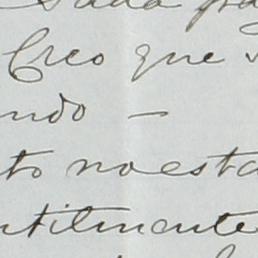 Creo que
ndo —
to no esta
ntilmente